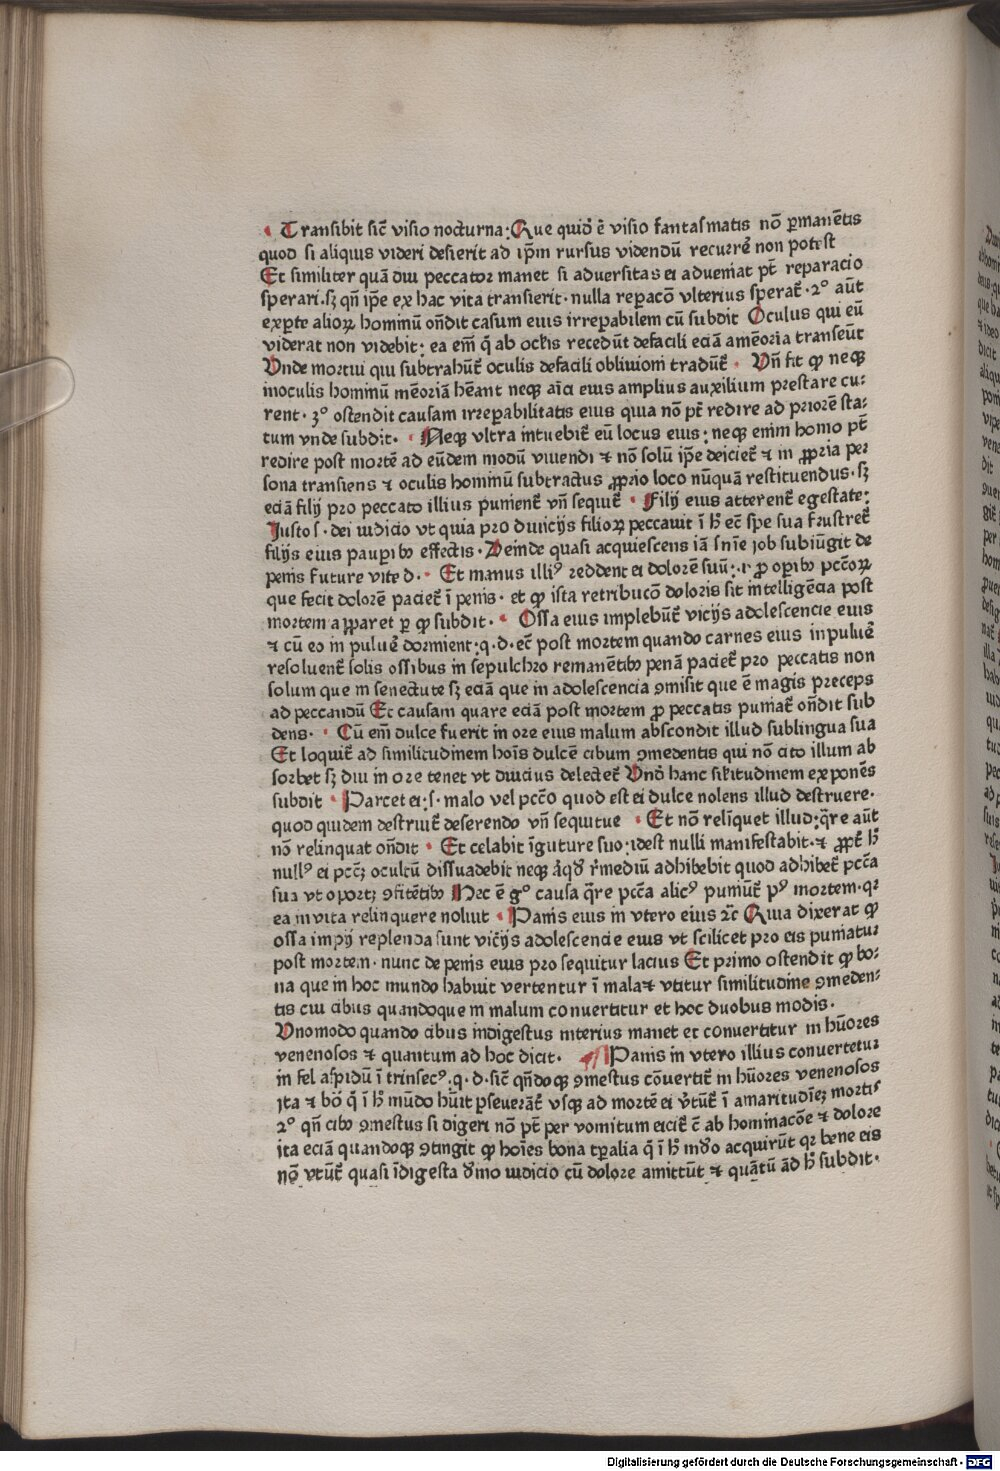 Transibit sic̄ visio nocturna: Que quid̄ ē visio fantasmatis nō ꝑmanētis
quod si aliquis videri desierit ad ip̄m rursus videndū recurrē non potest
Et similiter quā diu peccator manet si aduersitas ei adueniat pt̄ reparacio
sperari. sꝫ qn̄ ip̄e ex hac vita transierit· nulla reꝑacō vlterius sperat̄ ·2° aūt
exꝑte alioꝝ hominū on̄dit casum eius irreꝑabilem cū subdit Oculus qui eū
viderat non videbit: ea em̄ q̄ ab oc̄lis recedūt defacili eciā amēoria transeūt
Vnde mortui qui subtrahūt̄ oculis defacili obliuiom̄ tradūt̄ · Vn̄ fit ꝙ neqꝫ
inoculis hominū mēoriā hēant neqꝫ aīa eius amplius auxilium prestare cu:
rent· 3° ostendit causam irreꝑabilitatis eius quia nō pt̄ redire ad priorē sta:
tum vnde subdit· Neqꝫ vltra intuebit̄ eū locus eius: neqꝫ enim homo pt̄
redire post mortē ad eūdem modū viuendi ⁊ nō solū ip̄e deiciet̄ ⁊ in ꝓpria per
sona transiens ⁊ oculis hominū subtractus ꝓprio loco nūquā restituendus· sꝫ
eciā filij pro peccato illius punient̄ vn̄ sequit̄ · Filij eius atterent̄ egestate:
Justo s· dei iudicio vt quia pro diuicijs filioꝝ peccauit ī h̄ ec̄ spe sua frustret̄
filijs eius pauꝑibꝰ effectis· Deinde quasi acquiescens iā sn̄ie job subiūgit de
penis future vite d· · Et manus illiꝰ reddent ei dolorē suū: .r ꝓ oꝑibꝰ pcc̄oꝝ
que fecit dolorē paciet̄ ī penis· et ꝙ ista retribucō doloris sit intelligēcia post
mortem apparet ꝑ ꝙ subdit· · Ossa eius implebūt̄ vicijs adolescencie eius
⁊ cū eo in puluē dormient: q· d· ec̄ post mortem quando carnes eius inpuluē
resoluent̄ solis ossibus in sepulchro remanētibꝰ penā paciet̄ pro peccatis non
solum que in senectute sꝫ eciā que in adolescencia ꝯmisit que ē magis preceps
ad peccandū Et causam quare eciā post mortem ꝓ peccatis puniat̄ on̄dit sub
dens· · Cū em̄ dulce fuerit in ore eius malum abscondit illud sublingua sua
Et loquit̄ ad similitudinem hoīs dulcē cibum ꝯmedentis qui nō cito illum ab
sorbet sꝫ diu in ore tenet vt diucius delectet̄ Vnd̄ hanc silitudinem exponēs
subdit · Parcet ei: s· malo vel pcc̄o quod est ei dulce nolens illud destruere·
quod quidem destruit̄ deserendo vn̄ sequitue · Et nō relīquet illud: q̄re aūt
nō relinquat on̄dit · Et celabit īguture suo: idest nulli manifestabit· ⁊ ꝓpt̄ h̄
nullꝰ ei pcc̄ꝫ ocultū dissuadebit neqꝫ r̄mediū adhibebit quod adhibet̄ pcc̄a
sua vt oportꝫ ꝯfitētibꝰ Hec ē g° causa q̄re pcc̄a alicꝰ puniūt̄ pꝰ mortem·
ea in vita relinquere noluit · Panis eius in vtero eius ⁊c̄ Quia dixerat ꝙ
ossa impij replenda sunt vicijs adolescencie eius vt scilicet pro eis puniatur
post mortem· nunc de penis eius pro sequitur lacius Et primo ostendit ꝙ bo:
na que in hoc mundo habuit vertentur ī mala ⁊ vtitur similitudine ꝯmeden:
tis cui cibus quandoque in malum conuertitur et hoc duobus modis·
Vnomodo quando cibus indigestus interius manet et conuertitur in hūores
venenosos ⁊ quantum ad hoc dicit· ¶ Panis in vtero illius conuertetur
in fel aspidū ī trinsecꝰ· q· d· sic̄ qn̄doqꝫ ꝯmestus cōuertit̄ in hūores venenosos
ita ⁊ bō q̄ ī h̄ mūdo hūit ꝑseuerāt̄ vsqꝫ ad mortē ei v̄tūt̄ ī amaritudīeꝫ mortis
2° qn̄ cibꝰ ꝯmestus si digeri nō pt̄ per vomitum eicit̄ c̄ ab hominacōe ⁊ dolore
ita eciā quandoqꝫ ꝯtingit ꝙ hoīes bona tꝑalia q̄ ī h̄ mdo acquirūt bene eis
nō vtūt̄ quasi īdigesta dmo iudicio cū dolore amittūt ⁊ quātū ād h̄ subdit·
Digitalisierung gefördert durch die Deutsche Forschungsgemeinschaft - DFG